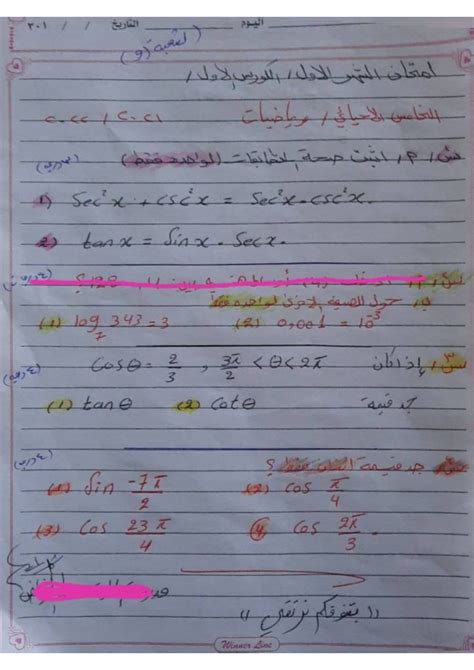 اليوم التاريخ / / ٢٠١
لشعبة (و)
امتحان الشهر الاول / الكورس الاول /
الخامس الاحيائي / رياضيات ٢٠٢١ / ٢٠٢٢
س١/ م/ اثبت صحة المتطابقات (لواحدة فقط)
1) Sec²x + csc²x = Sec²x . csc²x.
2) tanx = Sinx . Secx.
ب/ حول الصيغة الاخرى لواحدة فقط
(1) log₇ 343 = 3 (2) 0,001 = 10⁻³
س٣/ إذا كان Cosθ = 2/3 , 3π/2 < θ < 2π
(1) tanθ (2) Cotθ جد قيمة
س٤/ جد قيمة اثنان فقط ؟
(1) Sin -7π/2 (2) Cos π/4
(3) Cos 23π/4 4) Cos 2π/3 .
(( بتفوقكم نرتقي ))
Winner Line